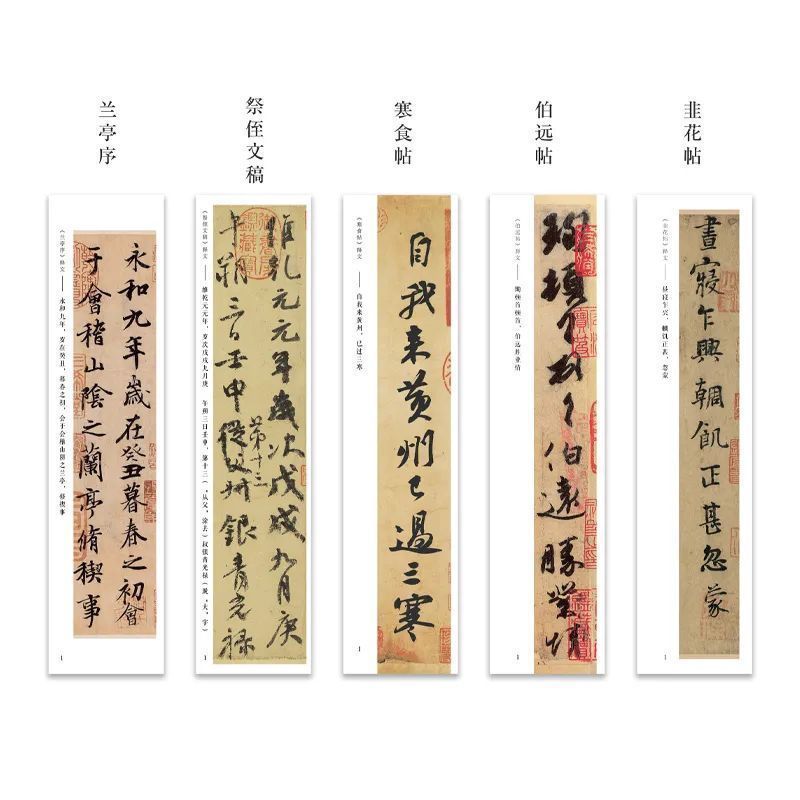 兰亭序
祭侄文稿
寒食帖
伯远帖
韭花帖
永和九年歲在癸丑暮春之初會
于會稽山陰之蘭亭脩禊事
《兰亭序》释文 —— 永和九年，岁在癸丑，暮春之初，会于会稽山阴之兰亭，修禊事
1
維乾元元年歲次戊戌九月庚
午朔三日壬申第十三從父叔銀青光禄
《祭侄文稿》释文 —— 维乾元元年，岁次戊戌九月庚 午朔三日壬申，第十三（“从父”涂去）叔银青光禄（脱“大”字）
1
自我來黃州已過三寒
《寒食帖》释文 —— 自我来黄州，已过三寒
1
珣頓首頓首伯遠勝業情
《伯远帖》释文 —— 珣顿首顿首，伯远胜业情
1
晝寢乍興輖飢正甚忽蒙
《韭花帖》释文 —— 昼寝乍兴，輖饥正甚，忽蒙
1